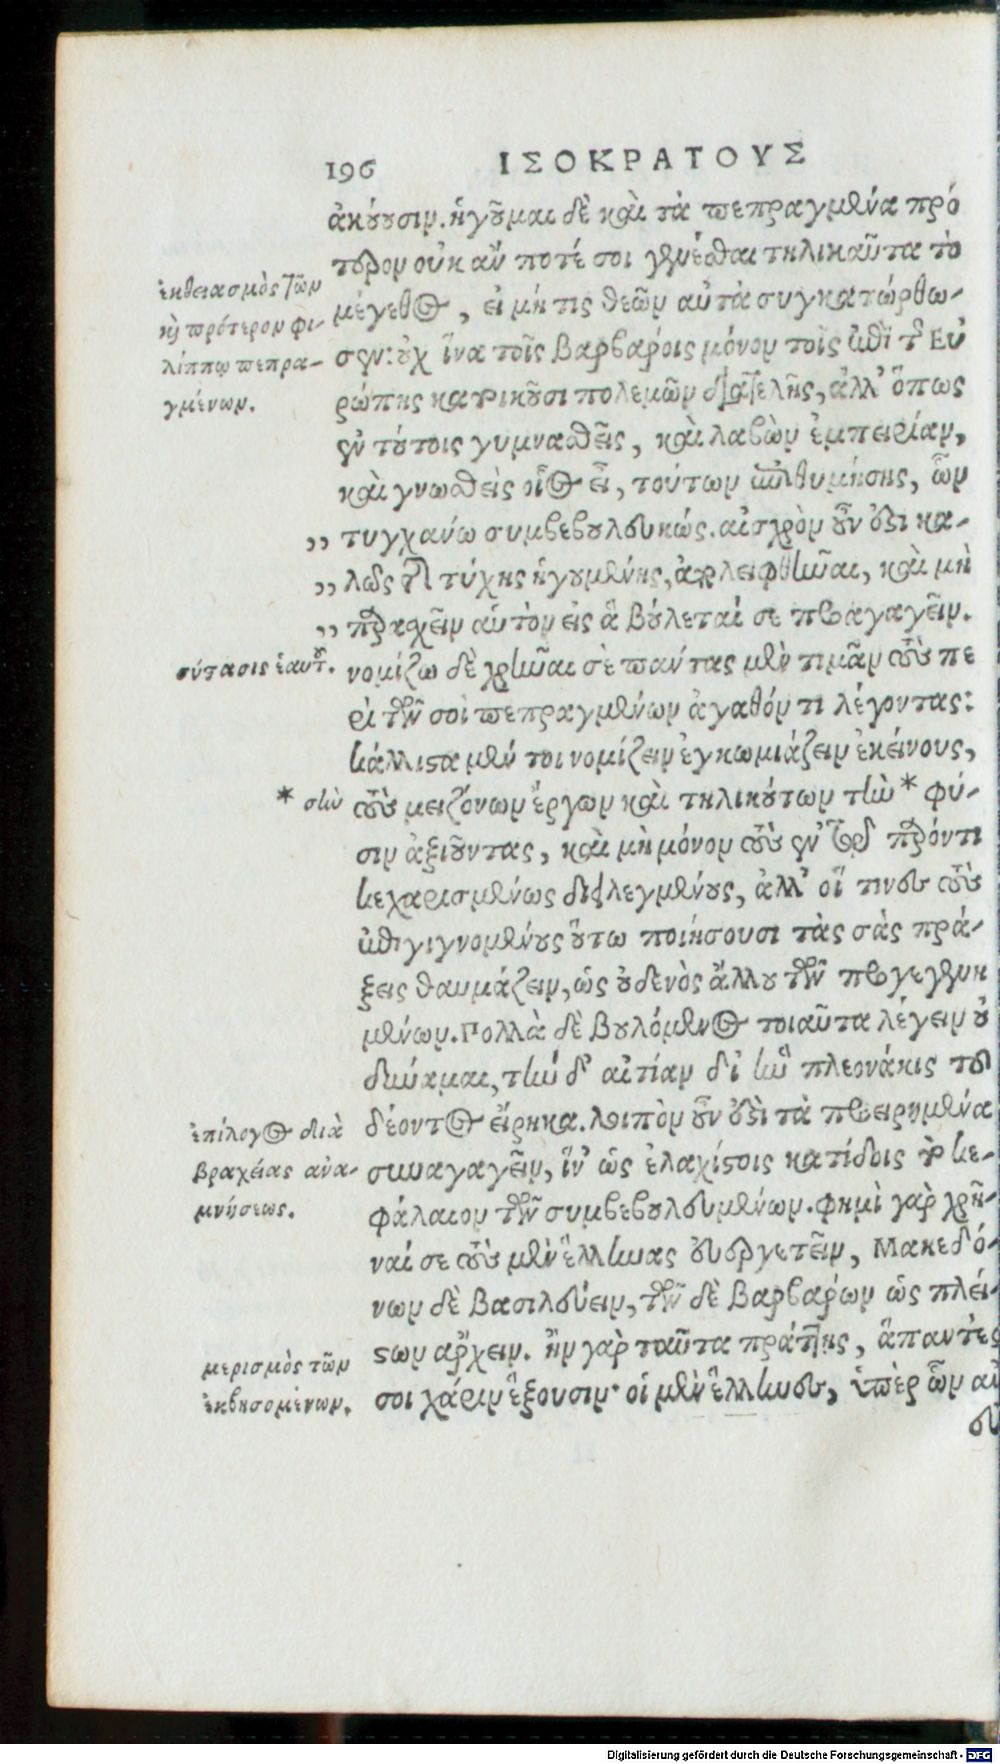 196 ΙΣΟΚΡΑΤΟΥΣ
ἀκούουσιν. ἡγοῦμαι δὲ καὶ τὰ πεπραγμένα πρό
τερον οὐκ ἄν ποτέ σοι γενέσθαι τηλικαῦτα τὸ
μέγεθος, εἰ μή τις θεῶν αὐτὰ συγκατώρθω-
σεν: οὐχ ἵνα τοῖς βαρβάροις μόνον τοῖς ἐπὶ τῆς Εὐ
ρώπης κατοικοῦσι πολεμῶν διατελῇς, ἀλλ' ὅπως
ἐν τούτοις γυμνασθεὶς, καὶ λαβὼν ἐμπειρίαν,
καὶ γνωσθεὶς οἷος εἶ, τούτων ἐπιθυμήσῃς, ὧν
,, τυγχάνω συμβεβουλευκώς. αἰσχρὸν οὖν ἐστι κα-
,, λῶς τῆς τύχης ἡγουμένης, ἀπολειφθῆναι, καὶ μὴ
,, παρασχεῖν αὑτὸν εἰς ἃ βούλεταί σε προαγαγεῖν.
νομίζω δὲ χρῆναι σὲ πάντας μὲν τιμᾶν τοὺς πε
ρὶ τῶν σοὶ πεπραγμένων ἀγαθόν τι λέγοντας:
κάλλιστα μέν τοι νομίζειν ἐγκωμιάζειν ἐκείνους,
τοὺς μειζόνων ἔργων καὶ τηλικούτων τὴν * φύ-
σιν ἀξιοῦντας, καὶ μὴ μόνον τοὺς ἐν τῷ παρόντι
κεχαρισμένως διειλεγμένους, ἀλλ' οἵ τινες τοὺς
ἐπιγιγνομένους οὕτω ποιήσουσι τὰς σὰς πρά-
ξεις θαυμάζειν, ὡς οὐδενὸς ἄλλου τῶν προγεγενη
μένων. Πολλὰ δὲ βουλόμενος τοιαῦτα λέγειν οὐ
δύναμαι, τὴν δ' αἰτίαν δι' ἣν πλεονάκις τοῦ
δέοντος εἴρηκα. λοιπὸν οὖν ἐστὶ τὰ προειρημένα
συναγαγεῖν, ἵν' ὡς ἐλαχίστοις κατίδοις τὸ κε-
φάλαιον τῶν συμβεβουλευμένων. φημὶ γὰρ χρῆ-
ναί σε τοὺς μὲν ἕλληνας εὐεργετεῖν, Μακεδό-
νων δὲ βασιλεύειν, τῶν δὲ βαρβάρων ὡς πλεί-
στων ἄρχειν. ἢν γὰρ ταῦτα πράττῃς, ἅπαντές
σοι χάριν ἕξουσιν· οἱ μὲν ἕλληνες, ὑπὲρ ὧν αὐ
ἐκθειασμὸς τῶν
καὶ πρότερον φι-
λίππῳ πεπρα-
γμένων.
σύστασις ἑαυτοῦ.
* σὴν
ἐπίλογος διὰ
βραχείας ἀνα-
μνήσεως.
μερισμὸς τῶν
ἐκβησομένων.
Digitalisierung gefördert durch die Deutsche Forschungsgemeinschaft - DFG